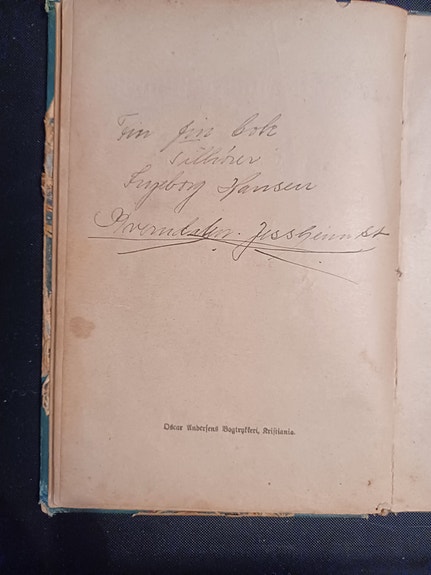 Fin fin bok
tilhører
Ingeborg Hansen
Kverndalen. Jessheim st
Oscar Andersens Bogtrykkeri, Kristiania.